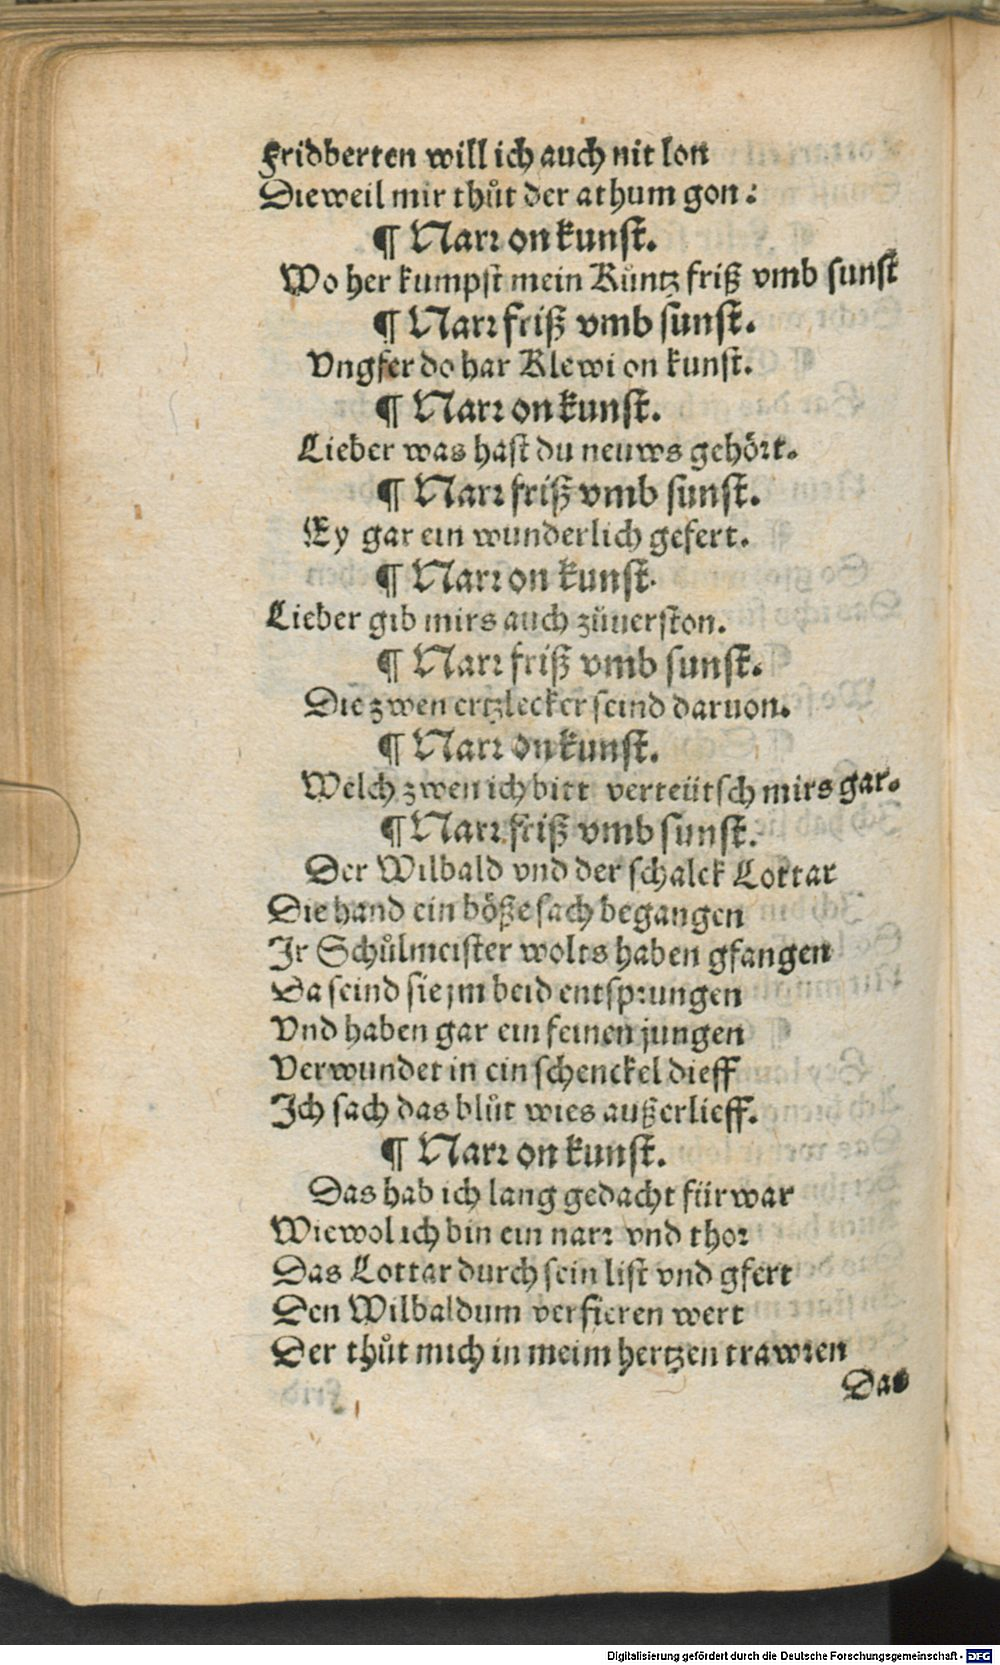 Fridberten will ich auch nit lon
Dieweil mir thůt der athum gon:
¶ Narr on kunst.
Wo her kumpst mein Kůntz friß vmb sunst
¶ Narr friß vmb sunst.
Vngfer do har Klewi on kunst.
¶ Narr on kunst.
Lieber was hast du neuws gehört.
¶ Narr friß vmb sunst.
Ey gar ein wunderlich gefert.
¶ Narr on kunst.
Lieber gib mirs auch zůuerston.
¶ Narr friß vmb sunst.
Die zwen ertzlecker seind daruon.
¶ Narr on kunst.
Welch zwen ich bitt verteütsch mirs gar.
¶ Narr friß vmb sunst.
Der Wilbald vnd der schalck Lottar
Die hand ein böße sach begangen
Ir Schůlmeister wolts haben gfangen
Da seind sie jm beid entsprungen
Vnd haben gar ein feinen jungen
Verwundet in ein schenckel dieff
Ich sach das blůt wies außerlieff.
¶ Narr on kunst.
Das hab ich lang gedacht fürwar
Wiewol ich bin ein narr vnd thor
Das Lottar durch sein list vnd gfert
Den Wilbaldum verfieren wert
Der thůt mich in meim hertzen trawren
Das
Digitalisierung gefördert durch die Deutsche Forschungsgemeinschaft - DFG